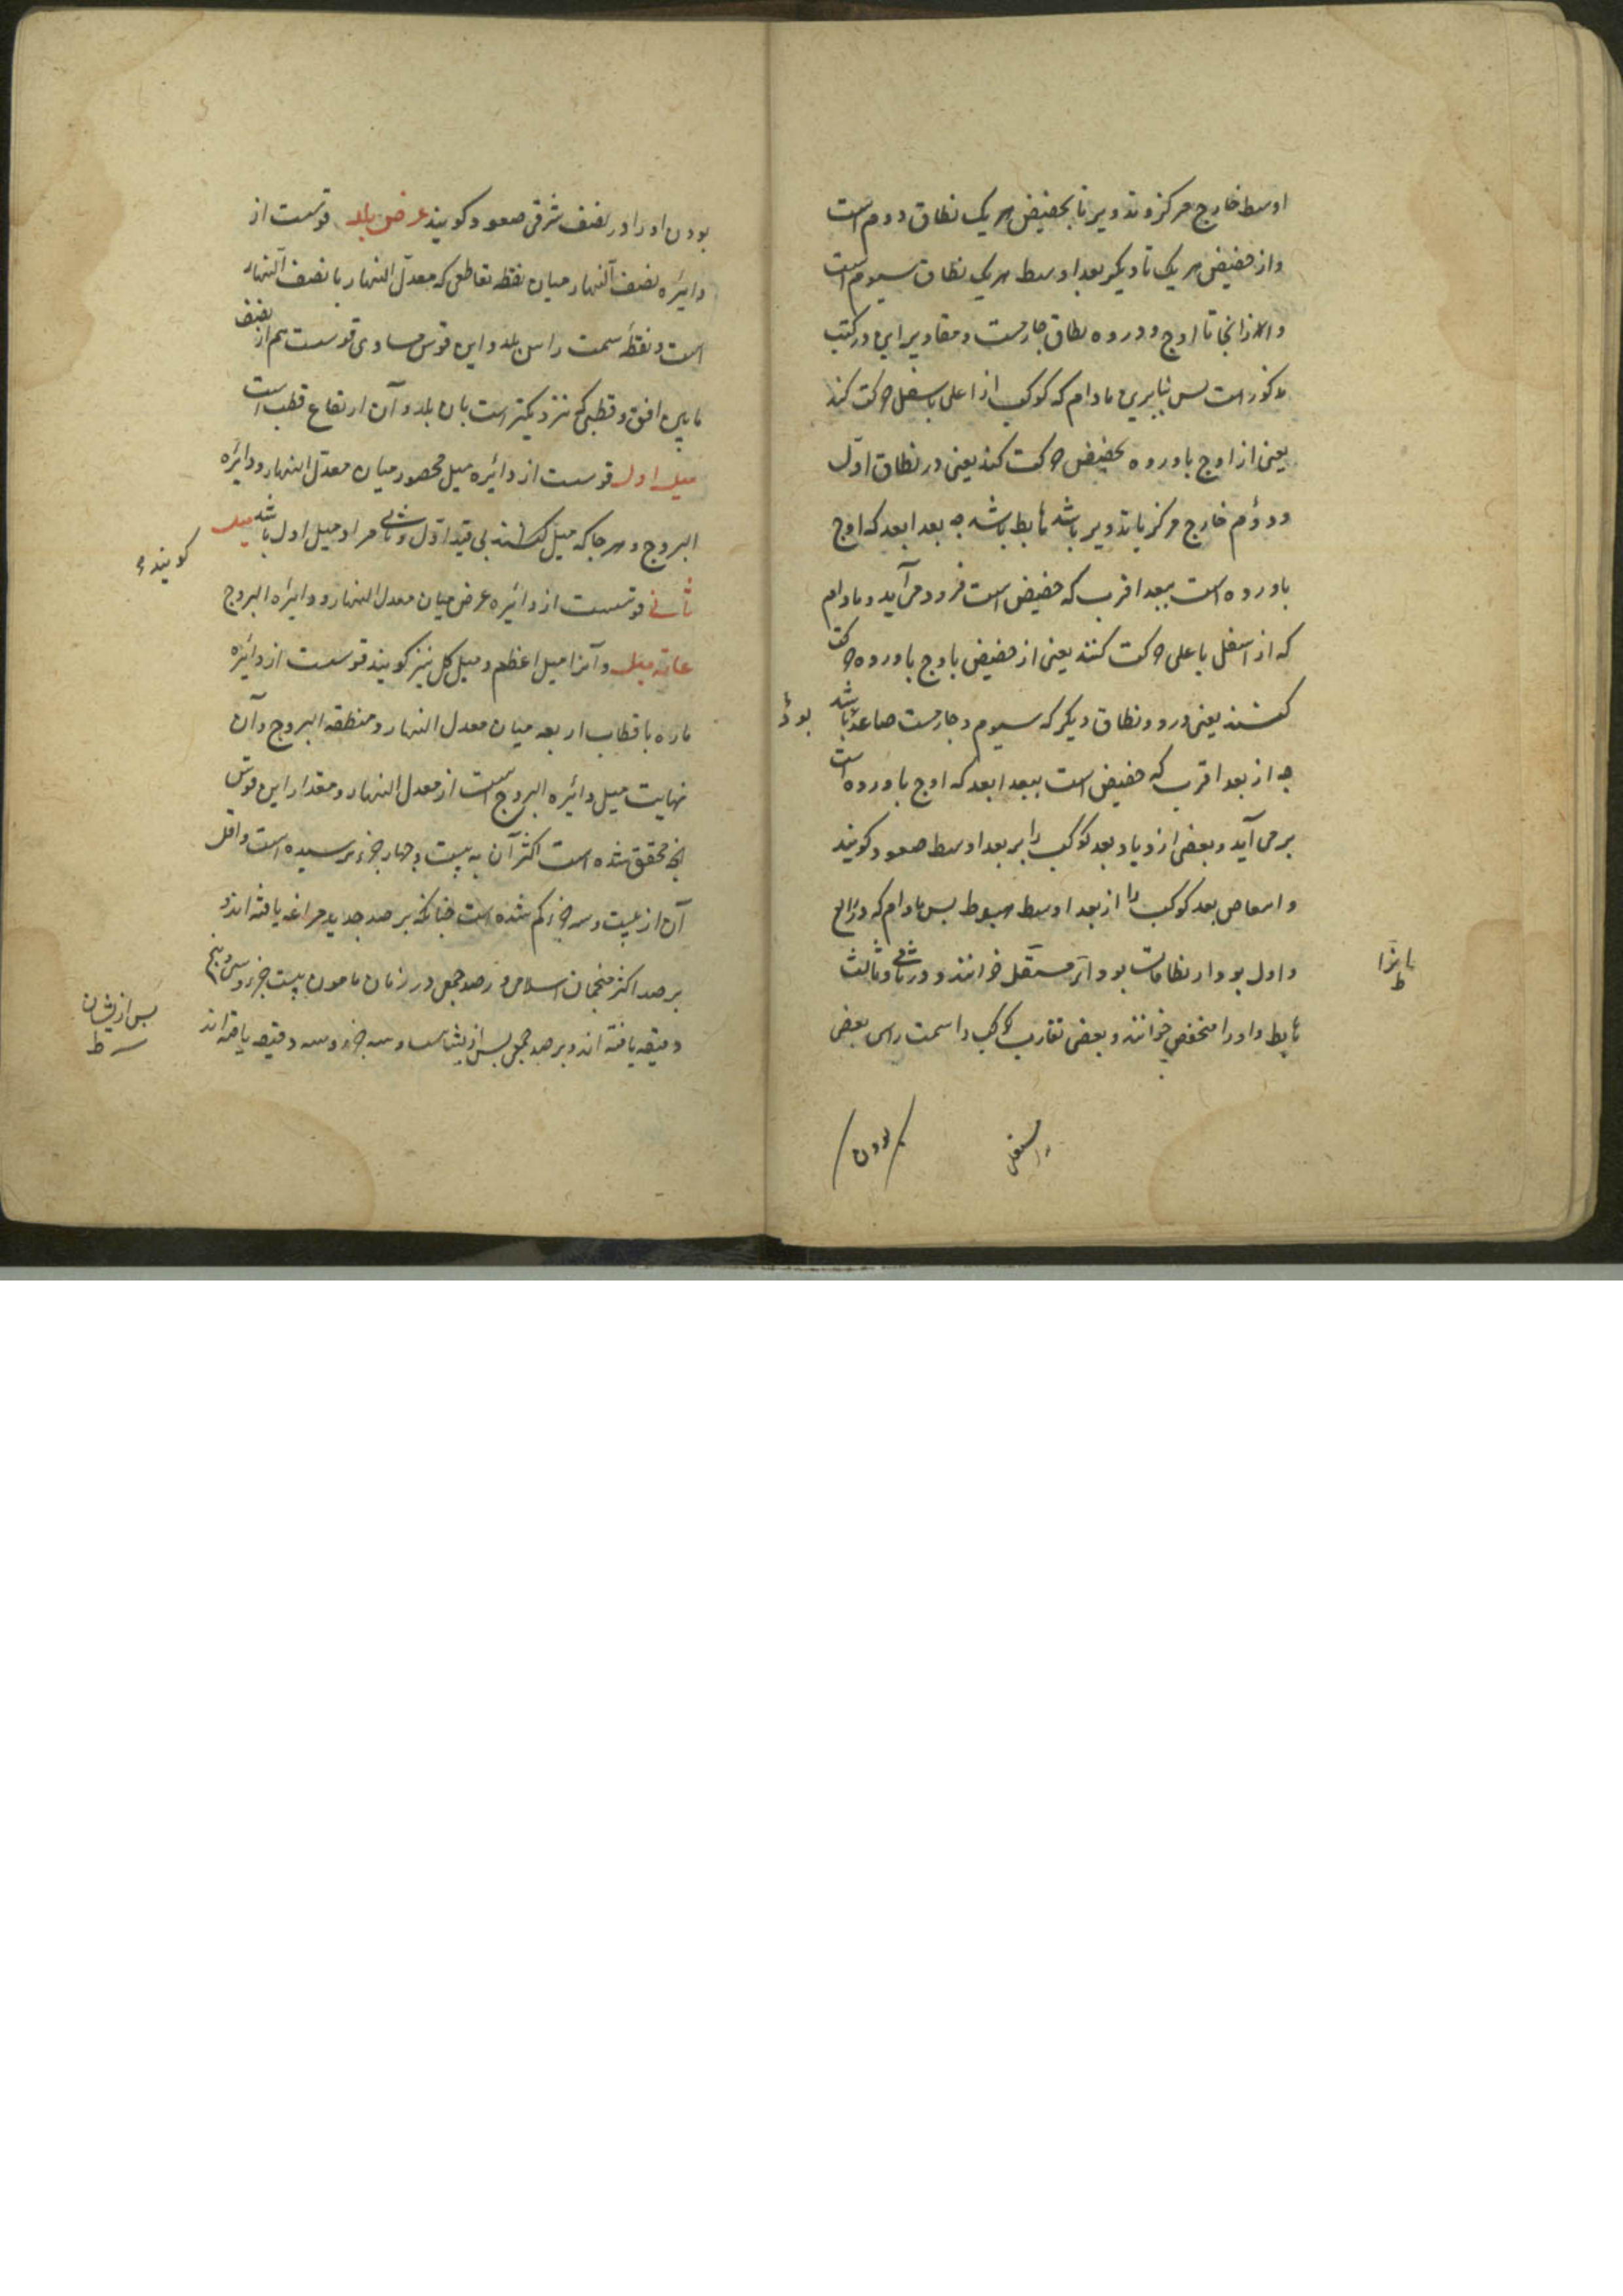 اوسط خارج مرکز و تدویر تا بحضیض هریک نطاق دوم است
و از حضیض هریک تا دیکر بعد اوسط هریک نطاق سیوم است
و از انجا تا اوج و دروه نطاق جارمست و مقادیر این در کتب
مذکور است بس بنابرین مادام که کوکب از اعلی باسفل حرکت کند
یعنی از اوج یا دروه بحضیض حرکت کند یعنی در نطاق اول
و دوم خارج مرکز یا تدویر باشد هابط باشد چه بعد ابعد که اوج
یا دروه است ببعد اقرب که حضیض است فرود می آید و مادام
که از اسفل باعلی حرکت کنند یعنی از حضیض باوج یا دروه حرکت
کنند یعنی در دو نطاق دیکر که سیوم و جارمست صاعد باشد
بود
چه از بعد اقرب که حضیض است ببعد ابعد که اوج یا دروه است
بر می آید و بعضی ازدیاد بعد کوکب را بر بعد اوسط صعود کویند
و انتقاص بعد کوکب را از بعد اوسط هبوط بس مادام که در رابع
و اول بود از نطاقات بود انرا مستقل خوانند و در ثانی و ثالث
هابط و او را منخفض خوانند و بعضی تقارب کوکب را سمت راس بعضی
بودن
مستقل
بودن او را در نصف شرقی صعود کویند عرض بلد قوسیست از
دائره نصف النهار میان نقطه تقاطعی که معدل النهار با نصف النهار
است و نقطه سمت راس بلد و این قوس مساوی قوسیست هم از نصف
مابین افق و قطبی که نزدیکتر است بان بلد و آن ارتفاع قطب است
میل اول قوسیست از دائره میل محصور میان معدل النهار و دائره
البروج و هر جا که میل کویند بی قید اول و ثانی مراد میل اول باشد میل
کویند
ثانی قوسیست از دائره عرض میان معدل النهار و دائره البروج
غایة میل و آنرا میل اعظم و میل کل نیز کویند قوسیست از دائره
ماره باقطاب اربعه میان معدل النهار و منطقه البروج و آن
نهایت میل دائره البروج است از معدل النهار و مقدار این قوس
انچه محقق شده است اکثر آن به بیست و چهار جزء نرسیده است و اقل
آن از بیست و سه جزء کم نشده است چنانکه برصد جدید مراغه یافته اند و
برصد اکثر منجمان اسلامی و رصد جمعی در زمان مامون بیست جزء و سی و پنج
دقیقه یافته اند و برصد جمعی بس از یشان بیست و سه جزء و سه دقیقه یافته اند
بس از یشان